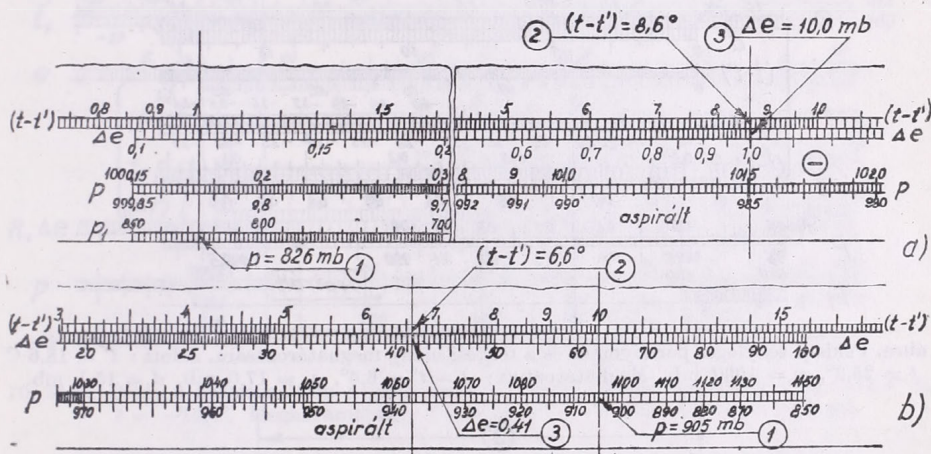 ② (t-t')=8,6° ③ Δe = 10,0 mb
(t-t') 0,8 0,9 1 1,5 5 6 7 8 9 10 (t-t')
Δe 0,1 0,15 0,2 0,6 0,7 0,8 0,9 1,0 Δe
p 1000,15 0,2 0,3 8 9 1010 101,5 102,0 p
999,85 9,8 9,7 992 991 990 985 980
aspirált
P₁ 850 800 700
p = 826 mb ① a)
(t-t')=6,6° ②
(t-t') 3 4 5 6 7 8 9 10 15 (t-t')
Δe 20 25 30 40 50 60 70 80 90 100 Δe
p 1030 1040 1050 1060 1070 1080 1100 1110 1120 1130 1150
970 960 950 940 930 920 910 900 890 880 870 850 b)
aspirált Δe=0,41 ③ p=905 mb ①